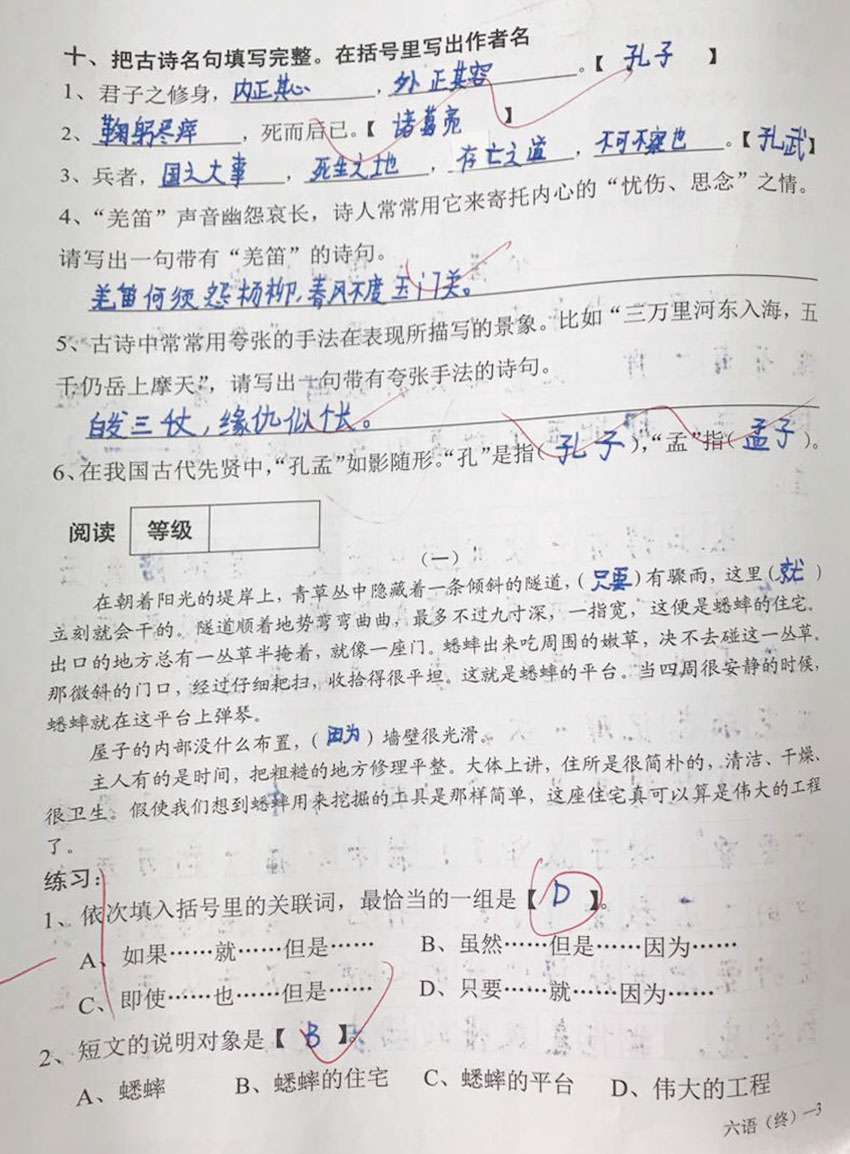 十、把古诗名句填写完整。在括号里写出作者名
1、君子之修身，内正其心，外正其容。【孔子】
2、鞠躬尽瘁，死而后已。【诸葛亮】
3、兵者，国之大事，死生之地，存亡之道，不可不察也。【孔武】
4、“羌笛”声音幽怨哀长，诗人常常用它来寄托内心的“忧伤、思念”之情。
请写出一句带有“羌笛”的诗句。
羌笛何须怨杨柳，春风不度玉门关。
5、古诗中常常用夸张的手法在表现所描写的景象。比如“三万里河东入海，五
千仞岳上摩天”，请写出一句带有夸张手法的诗句。
白发三仗，缘仇似个长。
6、在我国古代先贤中，“孔孟”如影随形。“孔”是指（孔子），“孟”指（孟子）。
阅读 等级
（一）
在朝着阳光的堤岸上，青草丛中隐藏着一条倾斜的隧道，（只要）有骤雨，这里（就）
立刻就会干的。隧道顺着地势弯弯曲曲，最多不过九寸深，一指宽，这便是蟋蟀的住宅。
出口的地方总有一丛草半掩着，就像一座门。蟋蟀出来吃周围的嫩草，决不去碰这一丛草。
那微斜的门口，经过仔细耙扫，收拾得很平坦。这就是蟋蟀的平台。当四周很安静的时候，
蟋蟀就在这平台上弹琴。
屋子的内部没什么布置，（因为）墙壁很光滑。
主人有的是时间，把粗糙的地方修理平整。大体上讲，住所是很简朴的，清洁、干燥、
很卫生。假使我们想到蟋蟀用来挖掘的工具是那样简单，这座住宅真可以算是伟大的工程
了。
练习：
1、依次填入括号里的关联词，最恰当的一组是【D】。
A、如果……就……但是…… B、虽然……但是……因为……
C、即使……也……但是…… D、只要……就……因为……
2、短文的说明对象是【B】。
A、蟋蟀 B、蟋蟀的住宅 C、蟋蟀的平台 D、伟大的工程
六语（终）—3